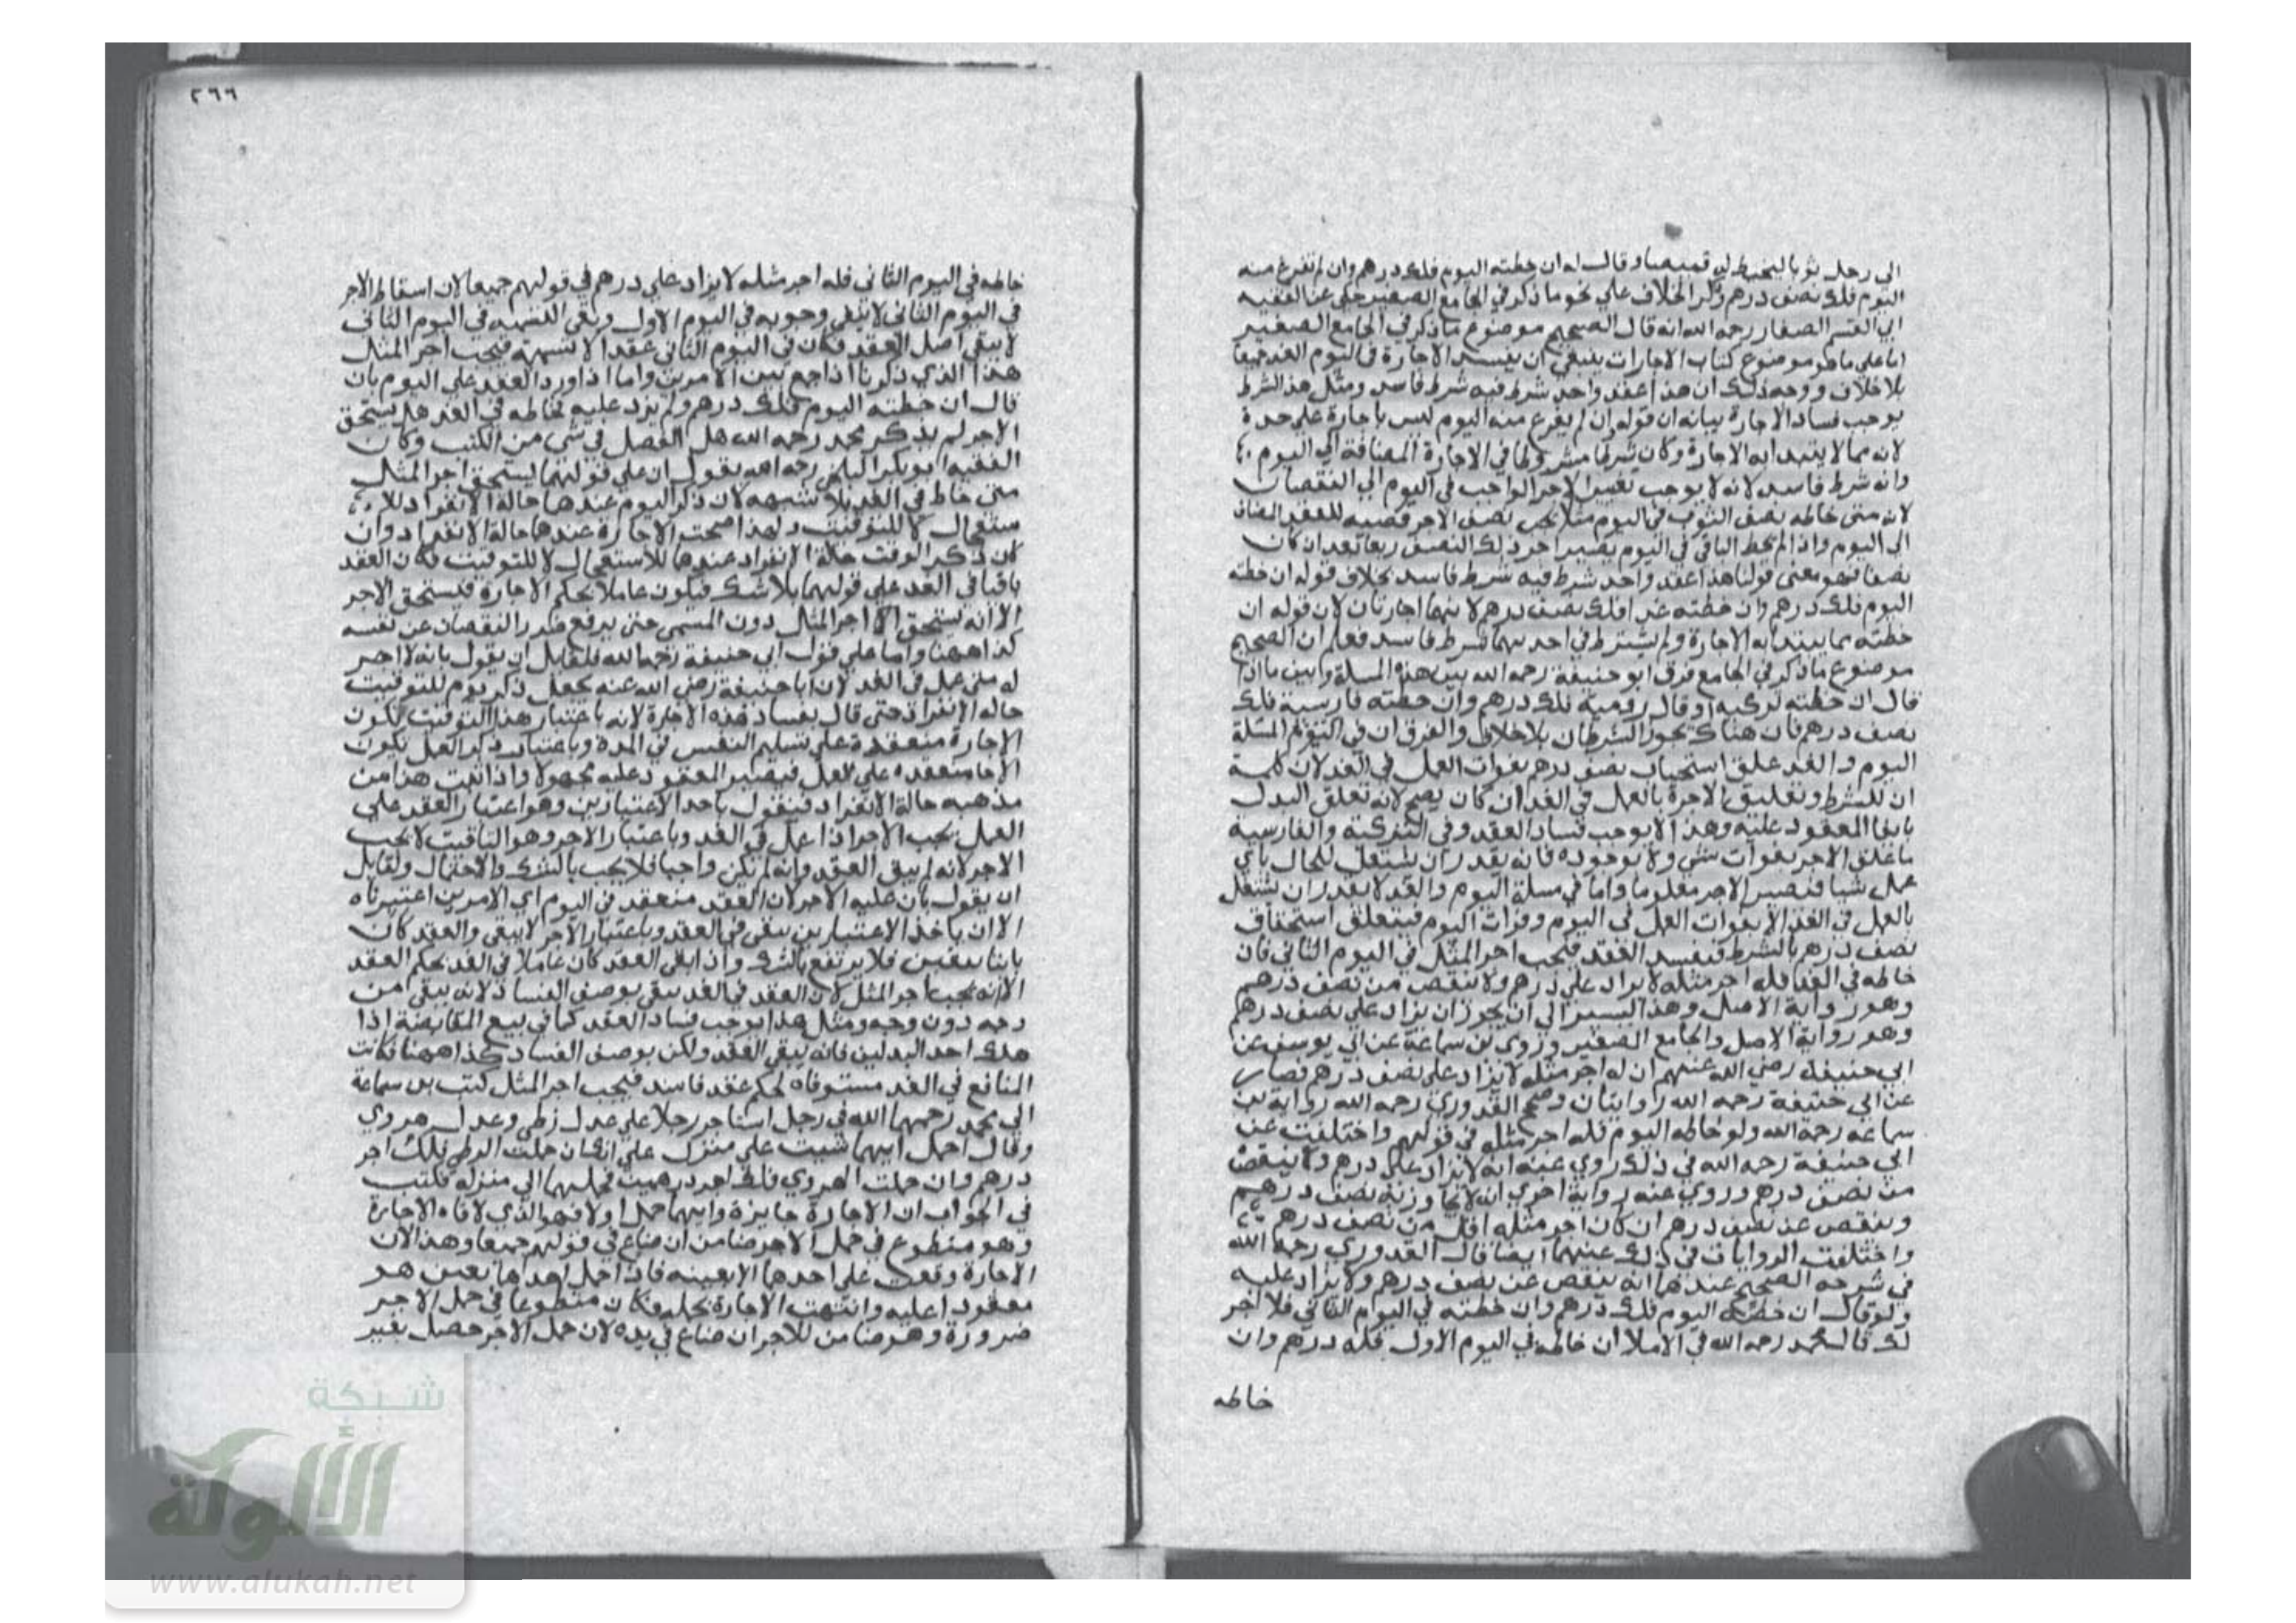 الى رجل ثوبا ليخيط له قميصا وقال له ان خطته اليوم فلك درهم وان لم تفرغ منه
اليوم فلك نصف درهم ذكر الخلاف على نحو ما ذكر في الجامع الصغير حكى عن الفقيه
ابي القسم الصفار رحمه الله انه قال الصحيح موضوع ما ذكر في الجامع الصغير
اما على ما هو موضوع كتاب الاجارات ينبغي ان يفسد الاجارة في اليوم الغد جميعا
بلا خلاف ووجه ذلك ان هذا عقد واحد شرط فيه شرط فاسد ومثل هذا الشرط
يوجب فساد الاجارة بيانه ان قوله ان لم يفرغ منه اليوم ليس باجارة على حدة
لانه مما لا يبتدا به الاجارة وكان شرطا مشروطا في الاجارة المضافة الى اليوم
وانه شرط فاسد لانه لا يوجب تغيير الاجر الواجب في اليوم الى النقصان
لانه متى خاطه نصف الثوب في اليوم مثلا يجب نصف الاجر قضية للعقد المضاف
الى اليوم واذا لم يخط الباقي في اليوم يصير اجر ذلك النصف ربعا بعد ان كان
نصفا فهو معنى قولنا هذا عقد واحد شرط فيه شرط فاسد بخلاف قوله ان خطته
اليوم فلك درهم وان خطته غدا فلك نصف درهم لانهما اجارتان لان قوله ان
خطته مما يبتدا به الاجارة ولم يشترط في احديهما شرط فاسد فعلم ان الصحيح
موضوع ما ذكر في الجامع فرق ابو حنيفة رحمه الله بين هذه المسلة وبين ما اذا
قال ان خطته تركية او قال رومية فلك درهم وان خطته فارسية فلك
نصف درهم فان هناك يجوز الشرطان بلا خلاف والفرق ان في المسلة
اليوم والغد علق استحقاق نصف درهم بفوات العمل في الغد لان كلمة
ان للشرط وتعليق الاجرة بالعمل في الغد ان كان يصح لانه تعلق البدل
بايفا المعقود عليه وهذا لا يوجب فساد العقد وفي التركية والفارسية
ما علق الاجر بفوات شى ولا بوجوده فانه يقدر ان يشتغل للحال باي
عمل شيا فيصير الاجر معلوما واما في مسلة اليوم والغد لا يقدر ان يشتغل
بالعمل في الغد الا بفوات العمل في اليوم وفوات اليوم فيتعلق استحقاق
نصف درهم بالشرط فيفسد العقد فيجب اجر المثل في اليوم الثاني فان
خاطه في الغد فله اجر مثله لا يزاد على درهم ولا ينقص من نصف درهم
وهو رواية الاصل وهذا اليسير الى ان يجوز ان يزاد على نصف درهم
وهو رواية الاصل والجامع الصغير وروى بن سماعة عن ابي يوسف عن
ابي حنيفة رضي الله عنهم ان له اجر مثله لا يزاد على نصف درهم فصار
عن ابي حنيفة رحمه الله روايتان وصحح القدوري رحمه الله رواية بن
سماعه رحمه الله ولو خاطه اليوم فله اجر مثله في قولهم واختلفت عن
ابي حنيفة رحمه الله في ذلك روي عنه انه لا يزاد على درهم ولا ينقص
من نصف درهم وروي عنه رواية اخرى انه لا يجاوز به نصف درهم
وينقص عن نصف درهم ان كان اجر مثله اقل من نصف درهم
واختلفت الروايات في ذلك عنهما ايضا قال القدوري رحمه الله
في شرحه الصحيح عندهما انه ينقص عن نصف درهم ولا يزاد عليه
ولو قال ان خطته اليوم فلك درهم وان خطته في اليوم الثاني فلا اجر
لك قال محمد رحمه الله في الاملا ان خاطه في اليوم الاول فله درهم وان
خاطه
٢٦٦
خاطه في اليوم الثاني فله اجر مثله لا يزاد على درهم في قولهم جميعا لان اسقاط الاجر
في اليوم الثاني لا ينفي وجوبه في اليوم الاول ونفي التسمية في اليوم الثاني
لا ينفي اصل العقد فكان في اليوم الثاني عقدا لا تسمية فيجب اجر المثل
هذا الذي ذكرنا اذا جمع بين الامرين واما اذا اورد العقد على اليوم بان
قال ان خطته اليوم فلك درهم ولم يزد عليه فخاطه في الغد هل يستحق
الاجر لم يذكر محمد رحمه الله هل الفصل في شى من الكتب وكان
الفقيه ابو بكر البلخي رحمه الله يقول ان على قولهما يستحق اجر المثل
متى خاط في الغد بلا شبهه لان ذكر اليوم عندهما حالة الانفراد للا
ستعجال لا للتوقيت ولهذا صحت الاجارة عندهما حالة الانفراد وان
كان ذكر الوقت حالة الانفراد عندهما للاستعجال لا للتوقيت فكان العقد
باقيا في الغد على قولهما بلا شك فيكون عاملا بحكم الاجارة فيستحق الاجر
الا انه يستحق اجر المثل دون المسمى حتى يرفع ضرر النقصان عن نفسه
كذا ههنا واما على قول ابي حنيفة رحمه الله فلقايل ان يقول بانه لا اجر
له متى عمل في الغد لان ابا حنيفة رضي الله عنه يجعل ذكر يوم للتوقيت
حاله الانفراد حتى قال بفساد هذه الاجارة لانه باعتبار هذا التوقيت تكون
الاجارة منعقدة على تسليم النفس في المدة وباعتبار ذكر العمل يكون
الاجا منعقده على العمل فيصير المعقود عليه مجهولا واذا ثبت هذا من
مذهبه حالة الانفراد فنقول باحد الاعتبارين وهو اعتبار العقد على
العمل يجب الاجر اذا عمل في الغد وباعتبار الاجر وهو التاقيت لا يجب
الاجر لانه لم يبق العقد وانه لم يكن واجبا فلا يجب بالشك والاحتمال ولقايل
ان يقول بان عليه الاجر لان العقد منعقد في اليوم اي الامرين اعتبرناه
الا ان باخذ الاعتبارين يبقى في العقد وباعتبار الاجر لا يبقى والعقد كان
ثابتا بيقين فلا يرتفع بالشك واذا بقى العقد كان عاملا في الغد بحكم العقد
الا انه يجب اجر المثل لان العقد في الغد يبقى بوصف الفساد لانه يبقى من
وجه دون وجه ومثل هذا يوجب فساد العقد كما في بيع المقايضة اذا
هلك احد البدلين فانه يبقى العقد ولكن بوصف الفساد كذا ههنا فكانت
المنافع في الغد مستوفاه بحكم عقد فاسد فيجب اجر المثل كتب بن سماعة
الى محمد رحمهما الله في رجل استاجر رجلا على عدل زطي وعدل هروي
وقال احمل ايهما شيت على منزلي على انك ان حملت الزطي فلك اجر
درهم وان حملت الهروي فلك اجر درهمين فحملهما الى منزله فكتب
في الجواب ان الاجارة جايزة وايهما حمل اولا فهو الذي لاقاه الاجارة
وهو متطوع في حمل الاخر ضامن ان ضاع في قولهم جميعا وهذا لان
الاجارة وقعت على احدهما لا بعينه فاذا حمل احدهما تعين هو
معقودا عليه وانتهت الاجارة بحمله فكان متطوعا في حمل الاخر
ضرورة وهو ضامن للاخر ان ضاع في يده لان حمل الاخر حصل بغير
شبكة
الألوكة
www.alukah.net